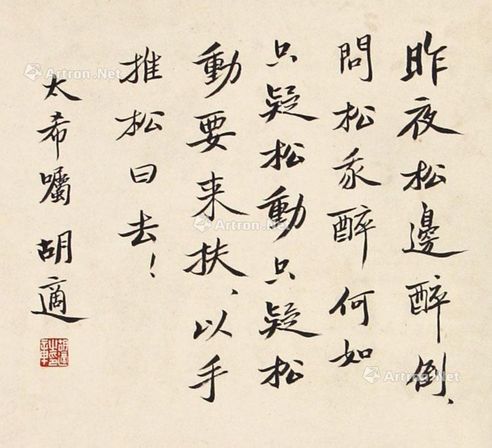 昨夜松邊醉倒、
問松我醉何如
只疑松動只疑松
動要来扶、以手
推松曰去！
太希囑 胡適
Artron.Net
Artron.Net
Artron.Net
Artron.Net